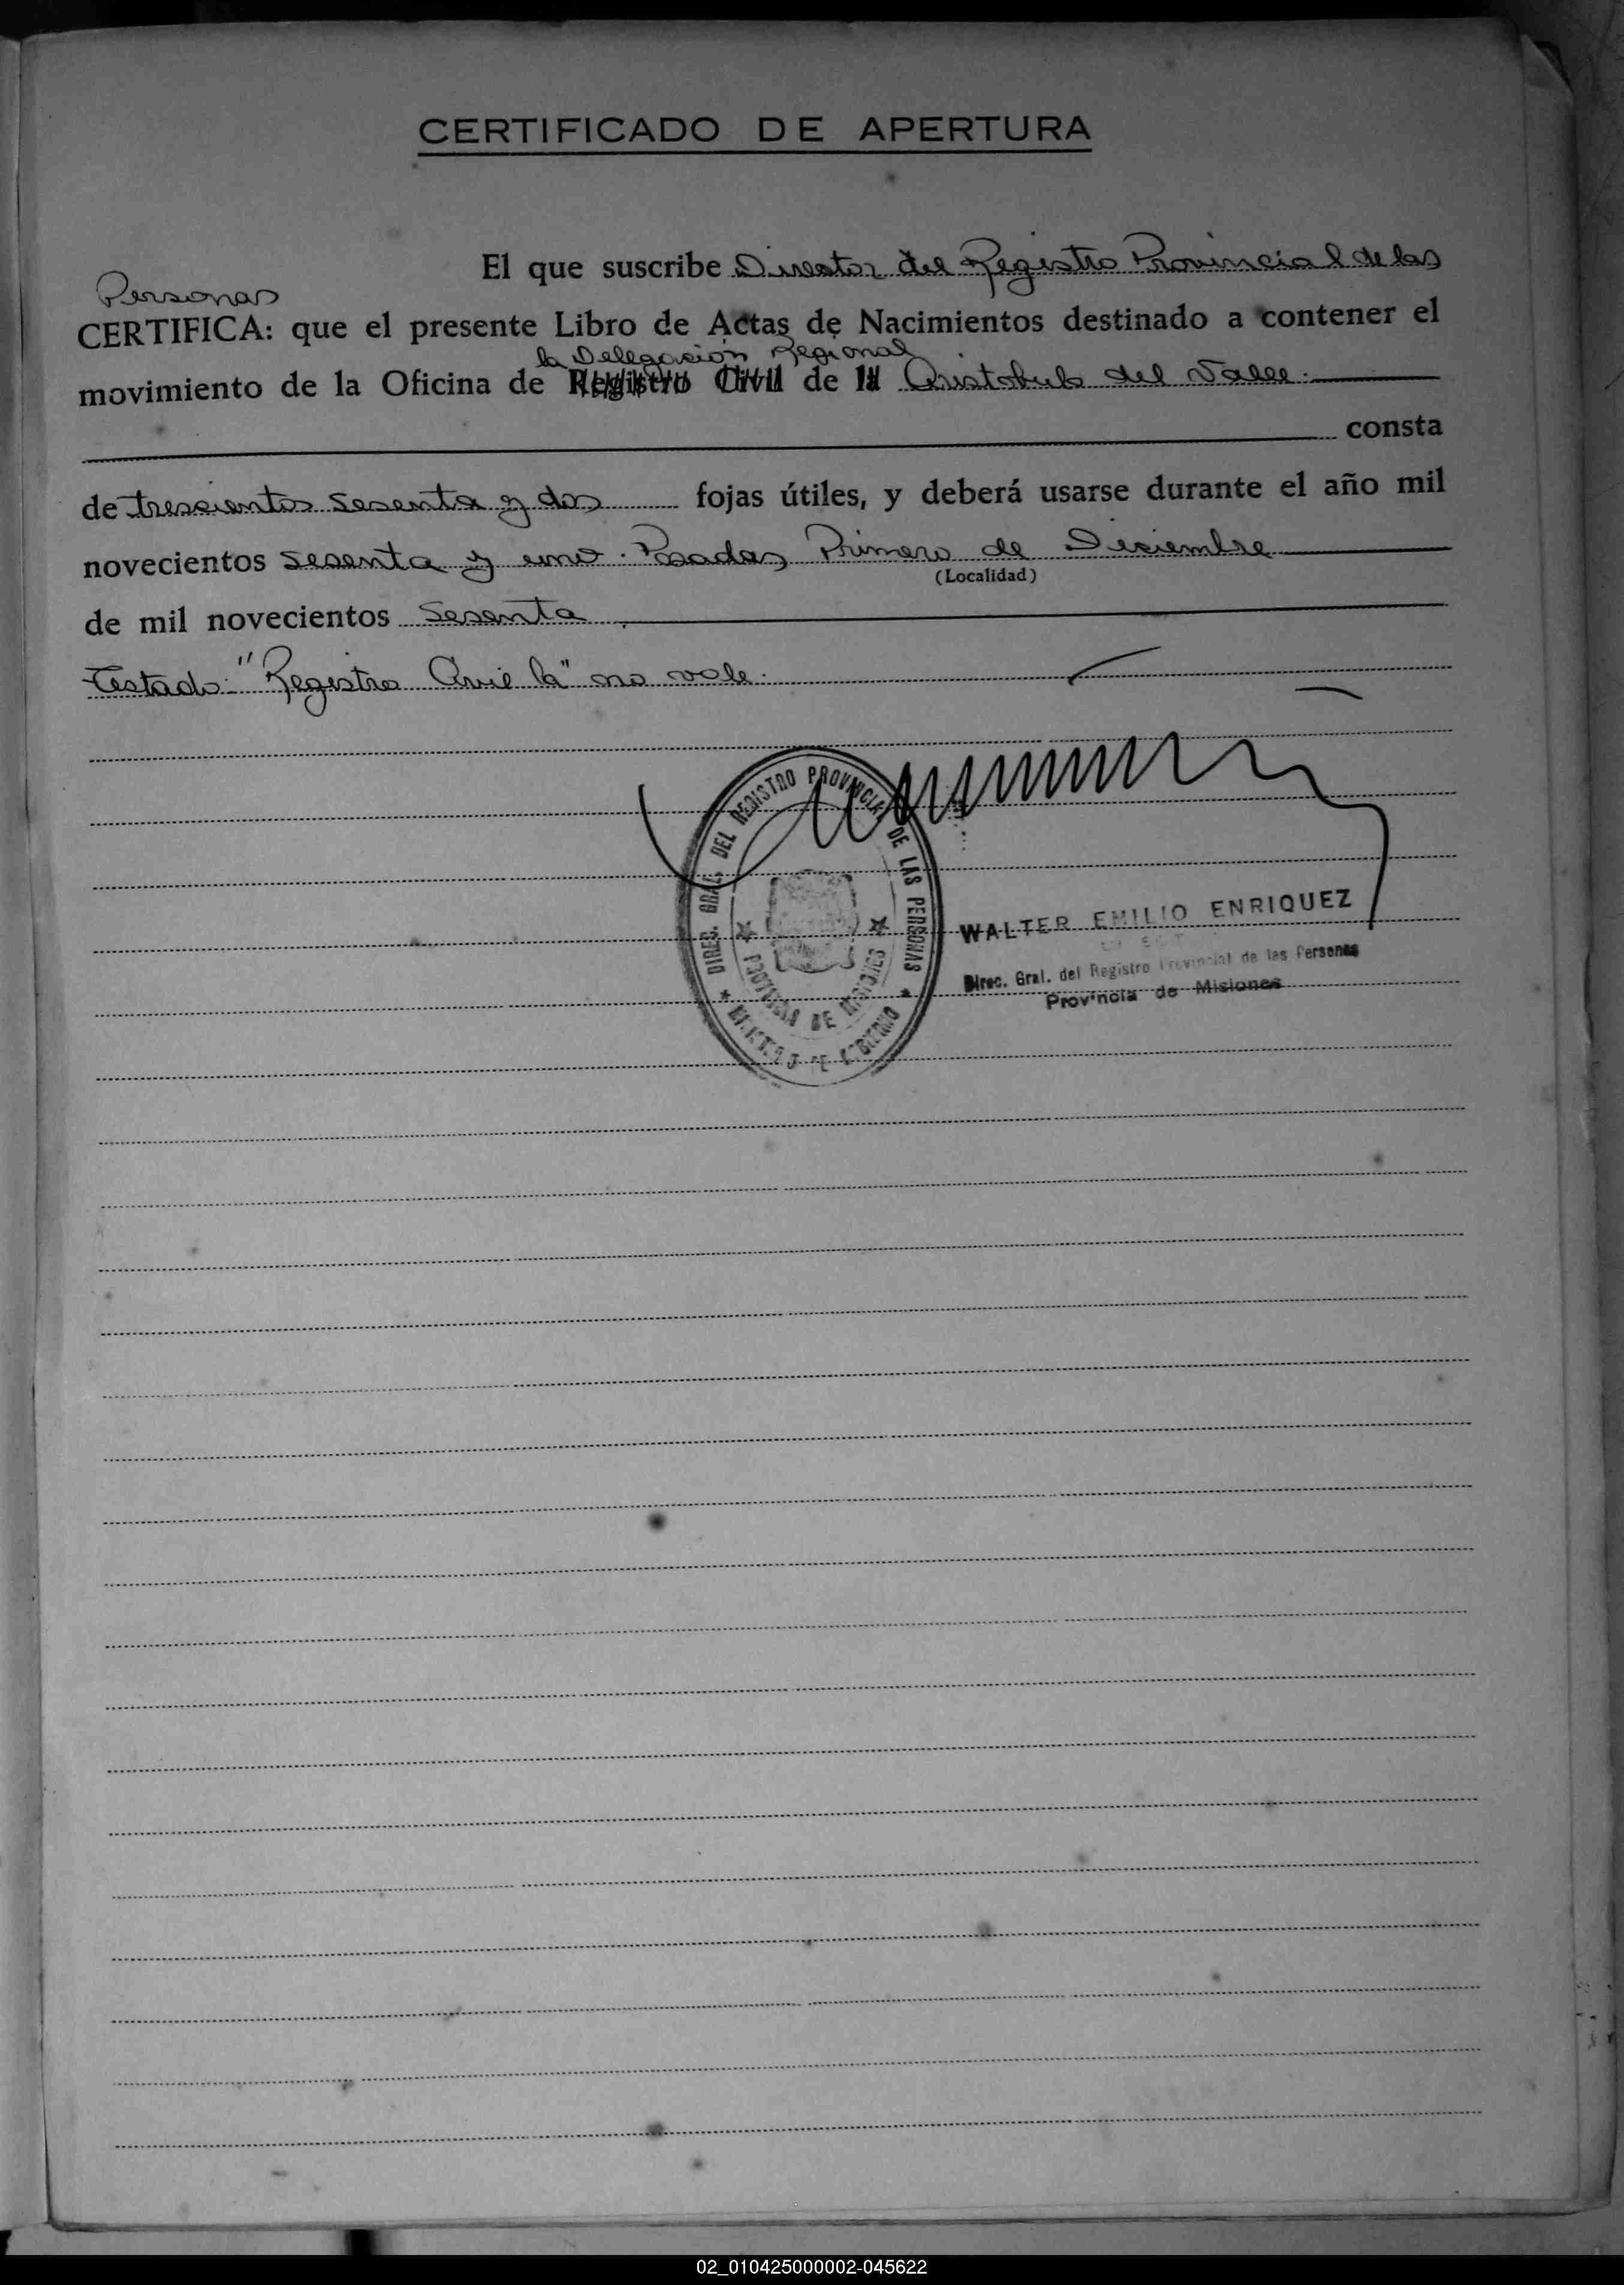 CERTIFICADO DE APERTURA
El que suscribe Director del Registro Provincial de las
Personas
CERTIFICA: que el presente Libro de Actas de Nacimientos destinado a contener el
la Delegación Regional
movimiento de la Oficina de Registro Civil de la Aristobulo del Valle.
consta
de trescientos sesenta y dos fojas útiles, y deberá usarse durante el año mil
novecientos sesenta y uno. Posadas, Primero de Diciembre
(Localidad)
de mil novecientos sesenta.
Testado: "Registro Civil la" no vale.
DIREC. GRAL. DEL REGISTRO PROVINCIAL DE LAS PERSONAS
PROVINCIA DE MISIONES
WALTER EMILIO ENRIQUEZ
Direc. Gral. del Registro Provincial de las Personas
Provincia de Misiones
02_010425000002-045622